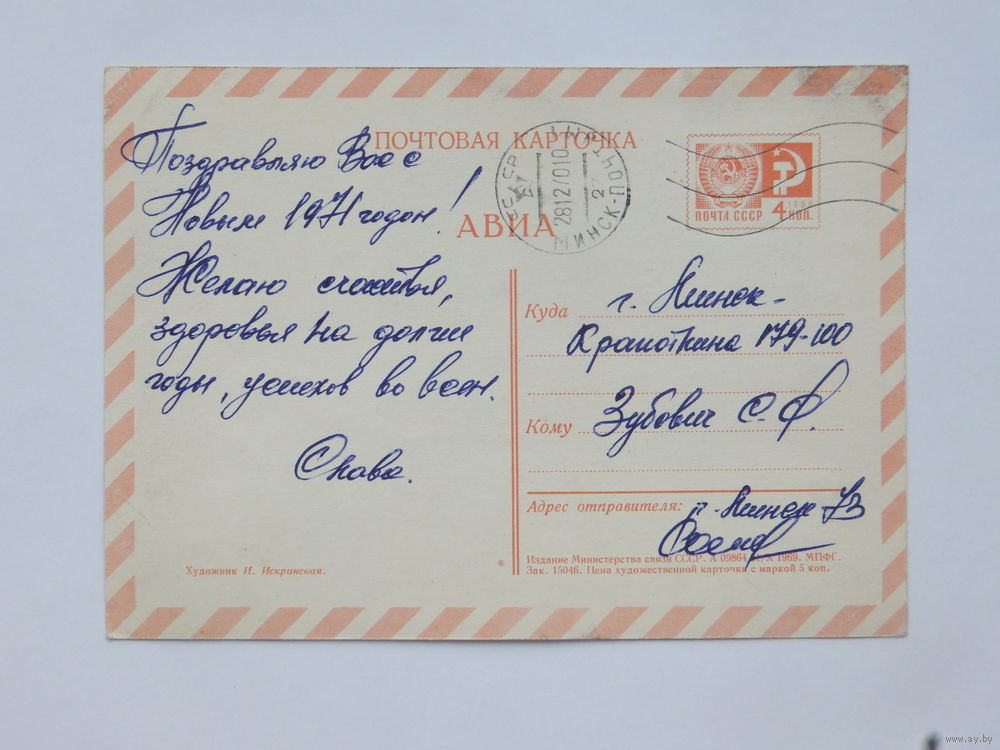 ПОЧТОВАЯ КАРТОЧКА
АВИА
СССР
МИНСК-ПОЧТ
28127010
ПОЧТА СССР
4 КОП.
1966
Поздравляю Вас с
Новым 1971 годом!
Желаю счастья,
здоровья на долгие
годы, успехов во всем.
Слава.
Художник И. Искринская.
*
Куда г. Минск-
Кропоткина 179-100
Кому Зубович С.Ф.
Адрес отправителя: г. Минск 73
Издание Министерства связи СССР. А 09864 X 1969. МПФГ.
Зак. 15046. Цена художественной карточки с маркой 5 коп.
www.ay.by